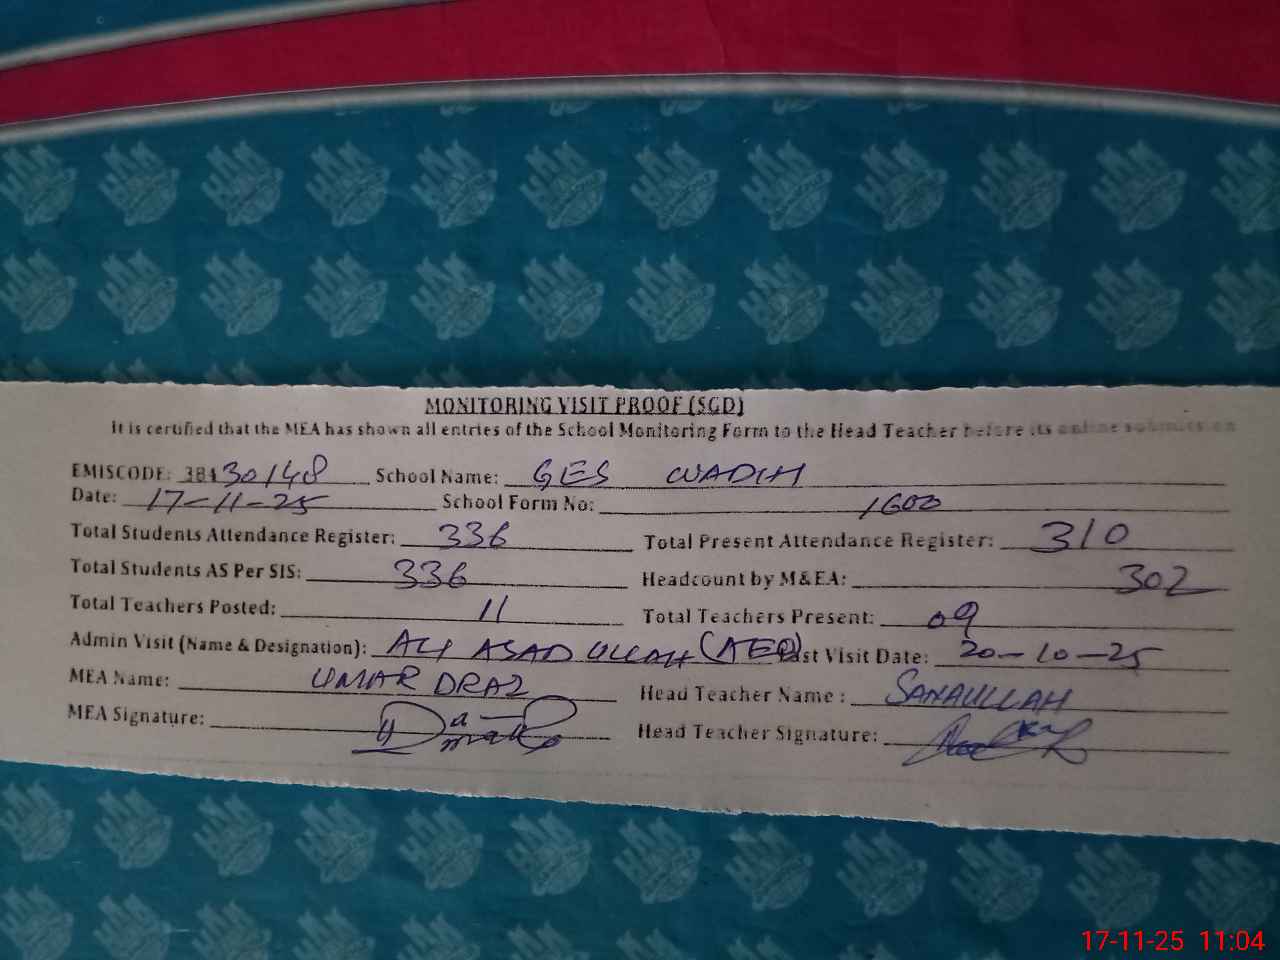 MONITORING VISIT PROOF (SGD)
It is certified that the MEA has shown all entries of the School Monitoring Form to the Head Teacher before its online submission
EMISCODE: 38430148 School Name: GES WADHI
Date: 17-11-25 School Form No: 1600
Total Students Attendance Register: 336 Total Present Attendance Register: 310
Total Students AS Per SIS: 336 Headcount by M&EA: 302
Total Teachers Posted: 11 Total Teachers Present: 09
Admin Visit (Name & Designation): ALI ASAD ULLAH (AEO) Last Visit Date: 20-10-25
MEA Name: UMAR DRAZ Head Teacher Name : SANAULLAH
MEA Signature: Head Teacher Signature:
17-11-25 11:04